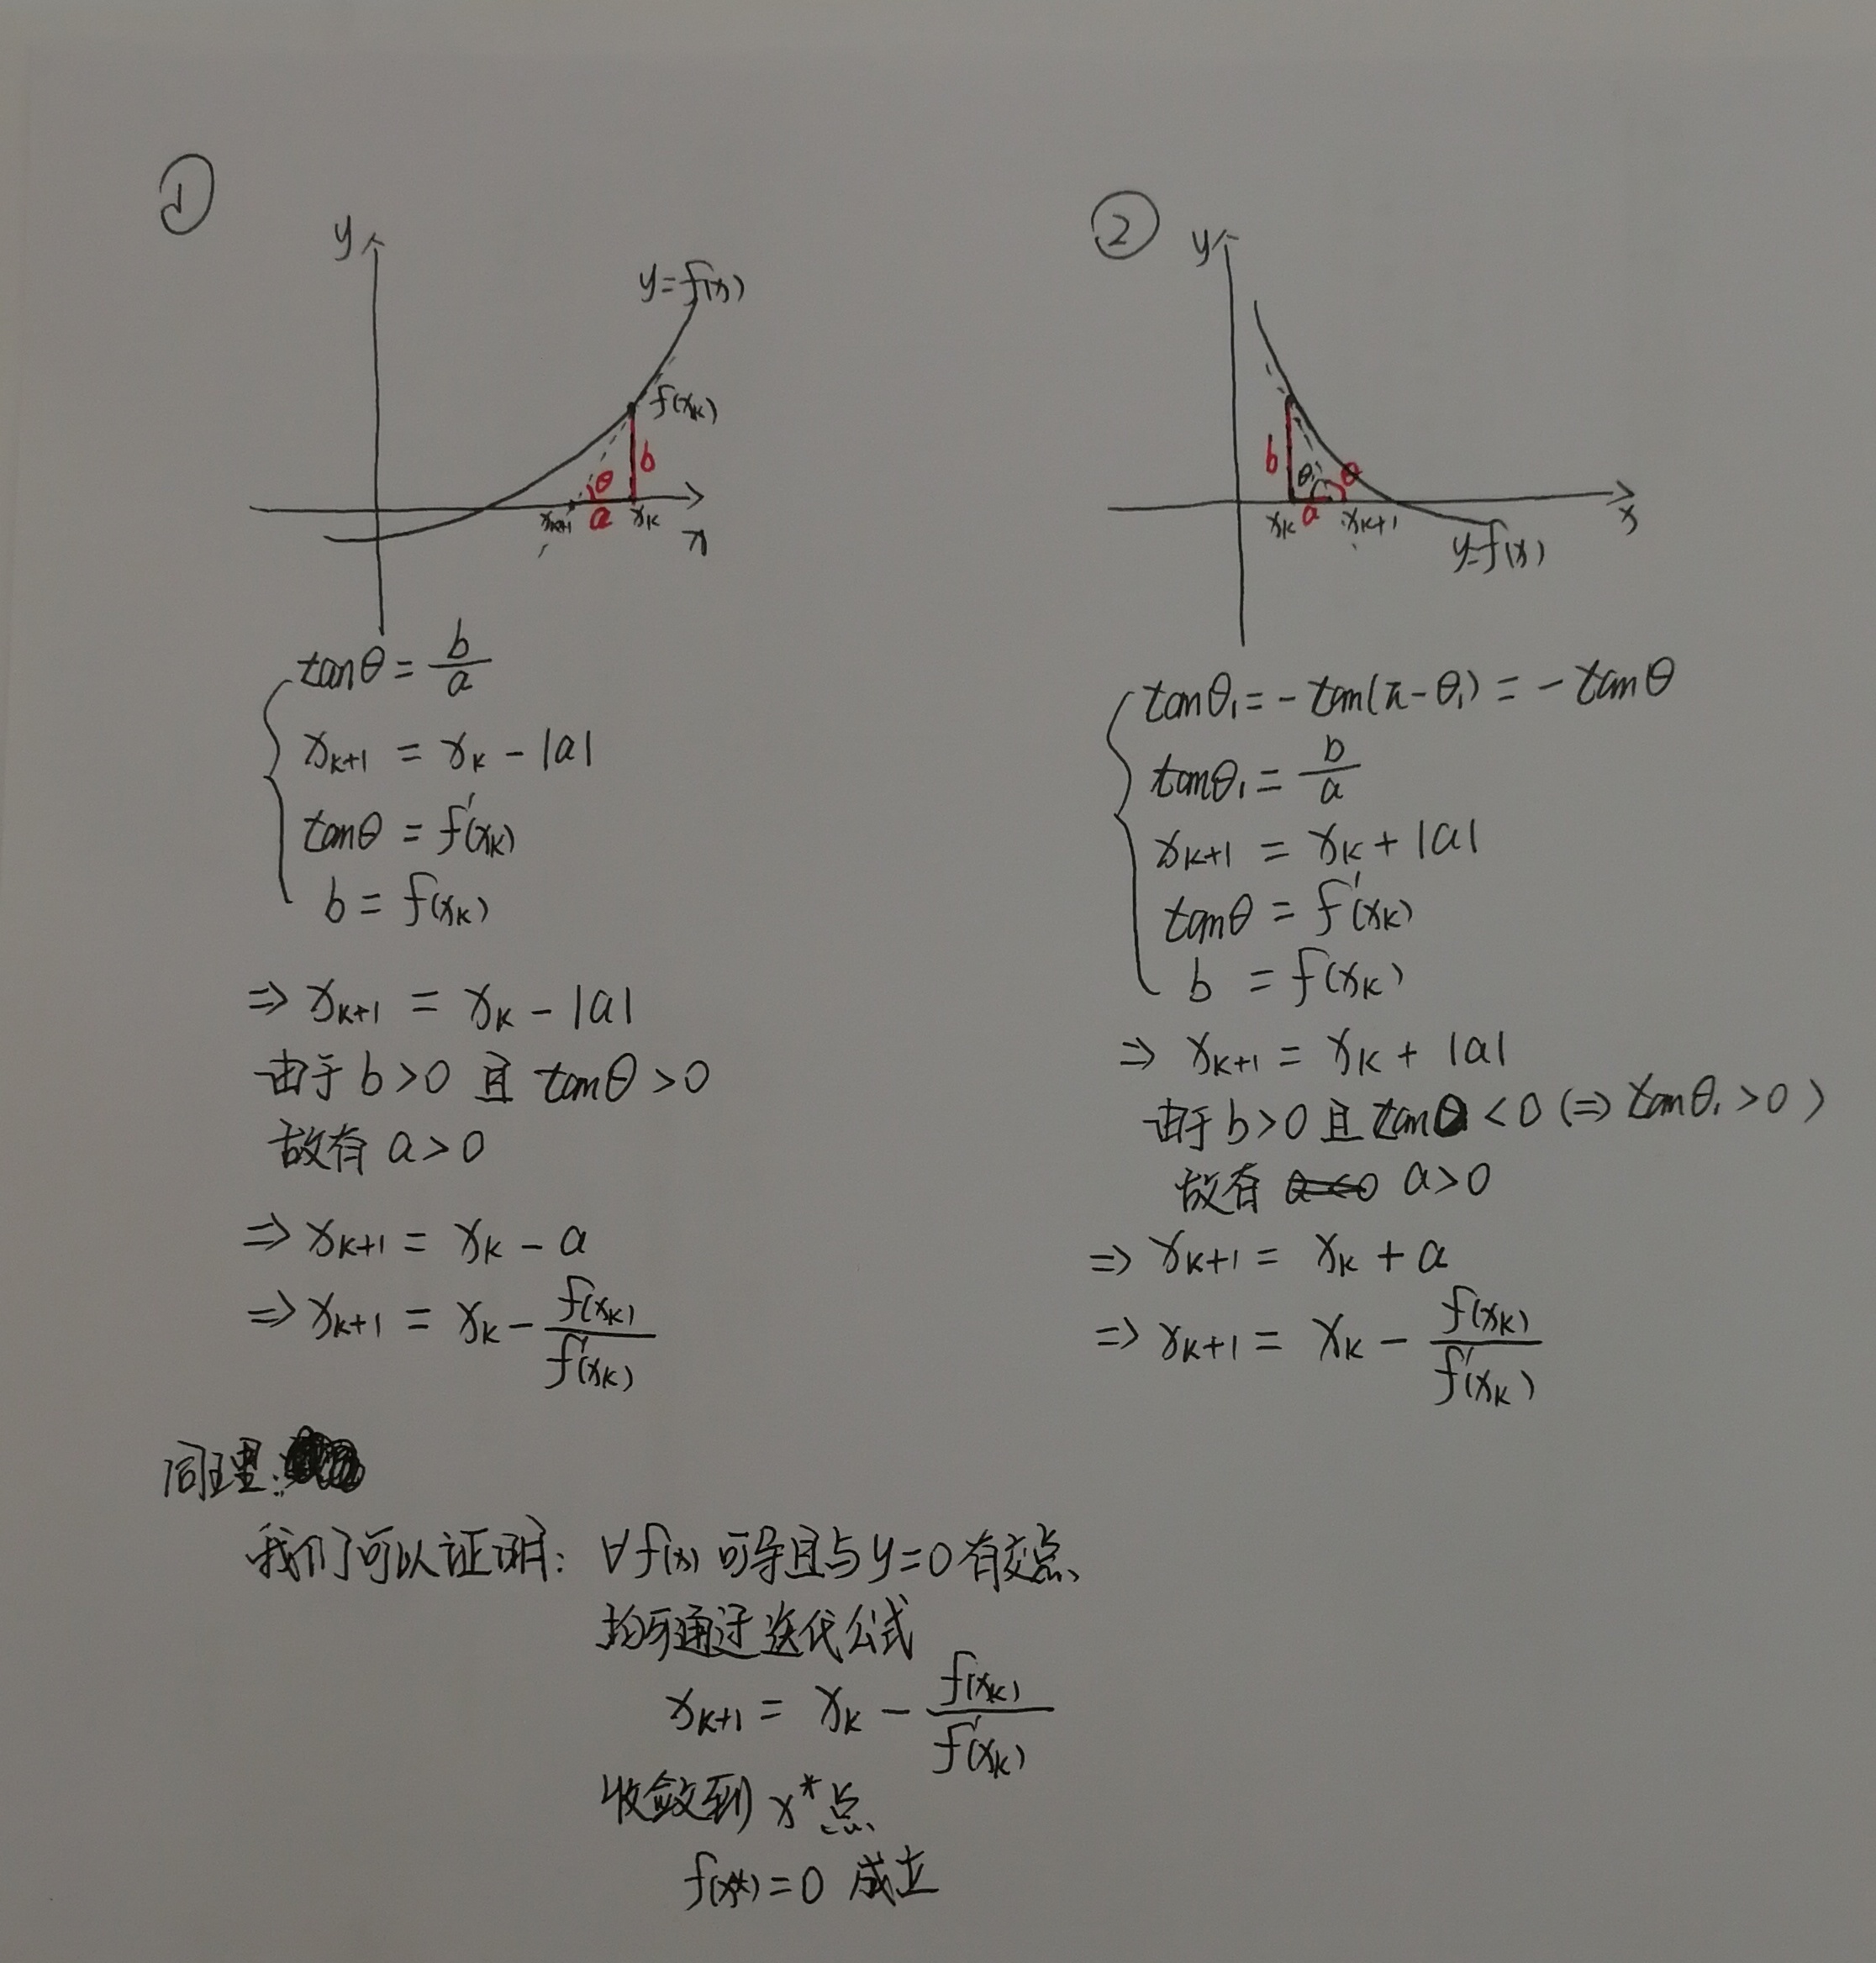 ①
y
y=f(x)
f(xₖ)
b
θ
xₖ₊₁ a xₖ
x
tanθ = b/a
xₖ₊₁ = xₖ - |a|
tanθ = f'(xₖ)
b = f(xₖ)
⇒ xₖ₊₁ = xₖ - |a|
由于 b>0 且 tanθ>0
故有 a>0
⇒ xₖ₊₁ = xₖ - a
⇒ xₖ₊₁ = xₖ - f(xₖ)/f'(xₖ)
②
y
b θ₁ θ
xₖ a xₖ₊₁
x
y=f(x)
tanθ₁ = -tan(π-θ₁) = -tanθ
tanθ₁ = b/a
xₖ₊₁ = xₖ + |a|
tanθ = f'(xₖ)
b = f(xₖ)
⇒ xₖ₊₁ = xₖ + |a|
由于 b>0 且 tanθ<0 (⇒ tanθ₁>0)
故有 a<0 a>0
⇒ xₖ₊₁ = xₖ + a
⇒ xₖ₊₁ = xₖ - f(xₖ)/f'(xₖ)
同理:
我们可以证明: ∀f(x) 可导且与 y=0 有交点、
均可通过迭代公式
xₖ₊₁ = xₖ - f(xₖ)/f'(xₖ)
收敛到 x* 点
f(x*)=0 成立